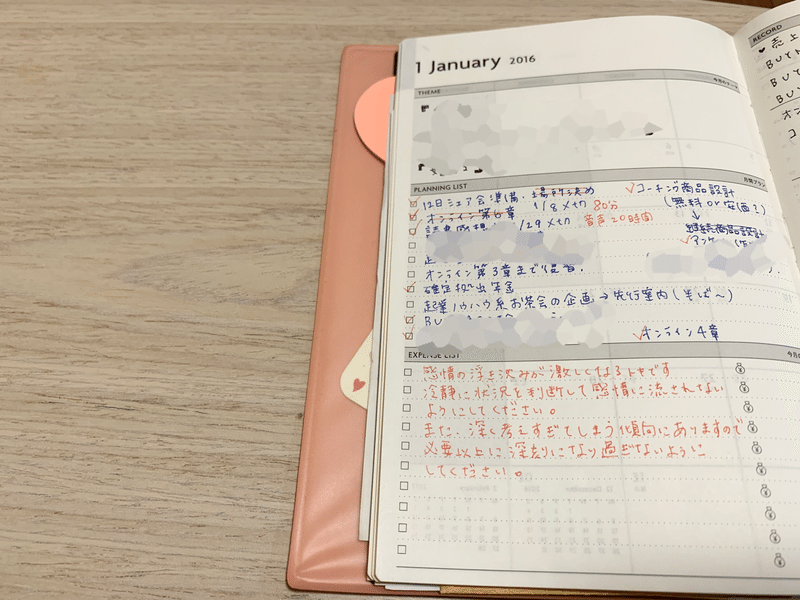 1 January 2016
THEME
PLANNING LIST
12日シェア会準備・場所決め
オンライン第6章 1/8〆切 80分
1/29〆切 音声20時間
オンライン第3章まで
確定拠出年金
起業ノウハウ系お茶会の企画→先行案内(半ば〜)
BU
コーチング商品設計
(無料or
↓
継続商品設計
オンライン4章
EXPENSE LIST
感情の浮き沈みが激しくなるトキです
冷静に状況を判断して感情に流されない
ようにしてください。
また、深く考えすぎてしまう傾向にありますので
必要以上に深刻になり過ぎないように
してください。
RECORD
♥売上
BUYM
BUY
BUY
オン
コ